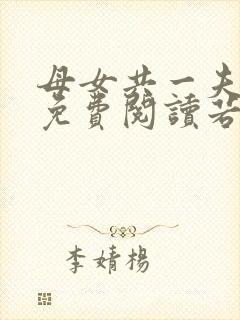 母女共一夫
免費閱讀若
李婧楊